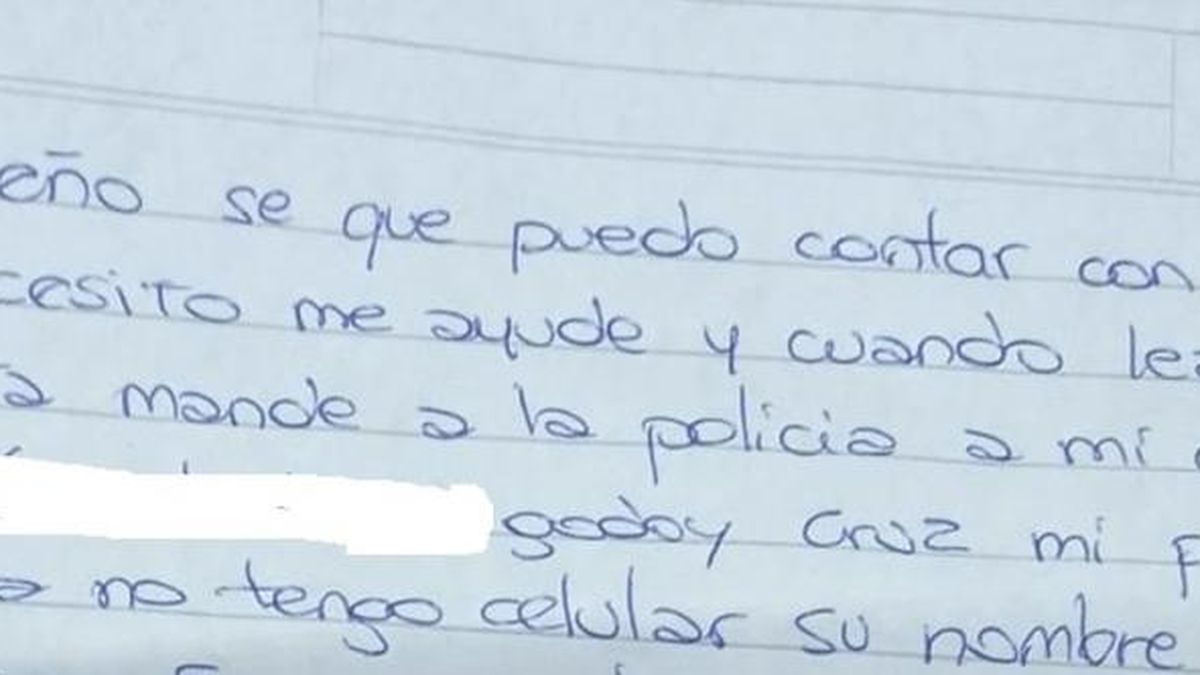 eño se que puedo contar con
cesito me ayude y cuando lea
ta mande a la policia a mi
godoy Cruz mi p
a no tengo celular su nombre